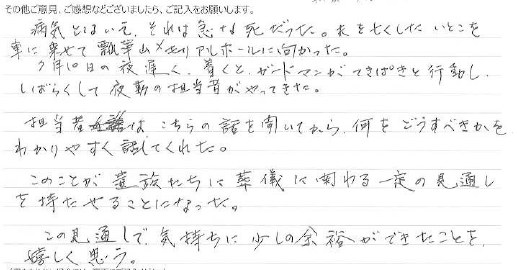 その他ご意見、ご感想などございましたら、ご記入をお願いします。
病気とはいえ、それは急な死だった。夫を亡くしたいとこを
車に乗せて瓢箪山メモリアルホールに向かった。
7月10日の夜遅く、着くと、ガードマンがてきぱきと行動し、
しばらくして夜勤の担当者がやってきた。
担当者は こちらの話を聞いてから、何をどうすべきかを
わかりやすく話してくれた。
このことが遺族たちに葬儀に関わる一定の見通し
を持たせることになった。
この見通しで、気持ちに少しの余裕ができたことを、
嬉しく思う。